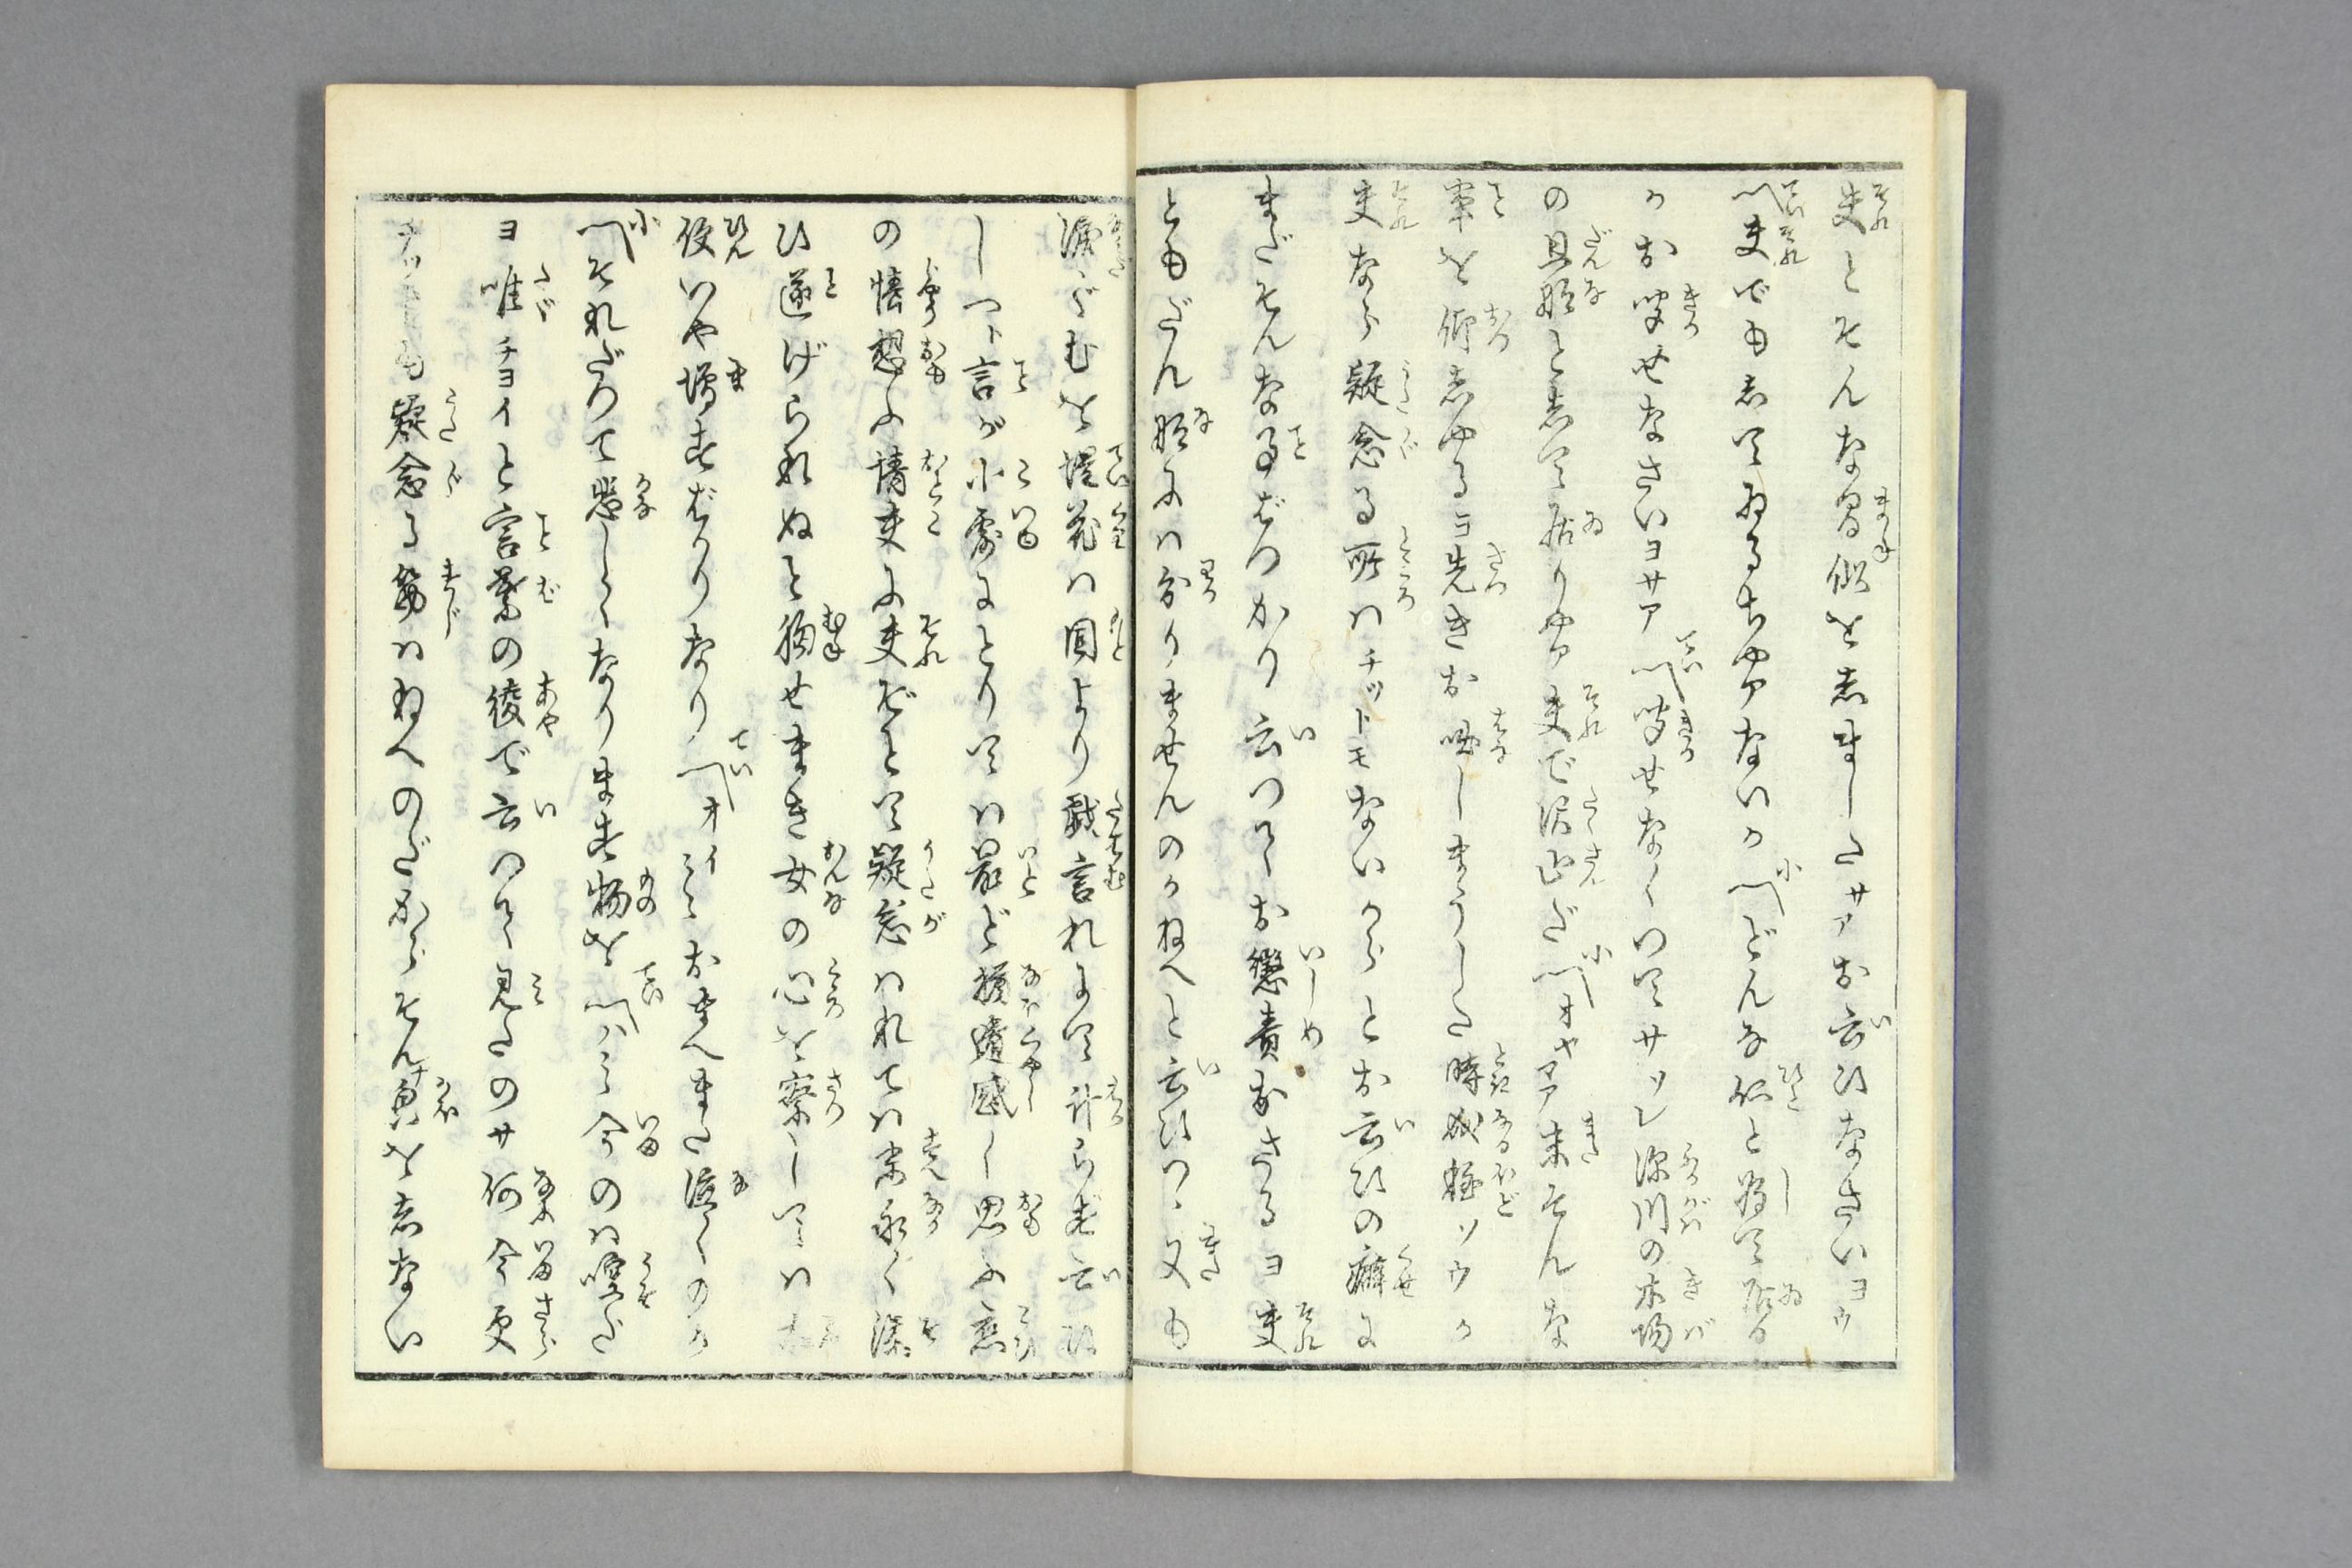 夫とそんな曷似を志ましたサアお云ひなさいヨウ
〽夫でも志つてゐるぢやアないか〽どんな仁と為て居る
かお聞せなさいヨサア〽聞せなくつてサソレ深川の木場
の旦那と志つて居りやア夫で沢山だ〽オヤマア未そんな
事を仰志やるヨ先きお咄しまうした時成程ソウか
夫なら疑念る所はチツトモないからとお云ひの癖に
まだそんな事ばつかり云つてお懲責なさるヨ夫
ともだん那には分りませんのかねへと云ひつゝ又も
涙ぐむを堤花は固より戯言れにて計らず云ひ
しつト言が小露にとりては最ど残遺感く思ふ恋
の情想ふ情夫に夫ぞとて疑念はれては末永く添
ひ遂げられぬと胸せまき女の心を察しては
便いや増すばかりなり〽オイミおまへまた泣くのか
〽それだつて悲しくなりますものを〽ハミ今のは嘘だ
ヨ唯チヨイと言葉の綾で云つて見たのサ何今更
チツトも疑念る筋はねへのだからそんナ㒵を志ない